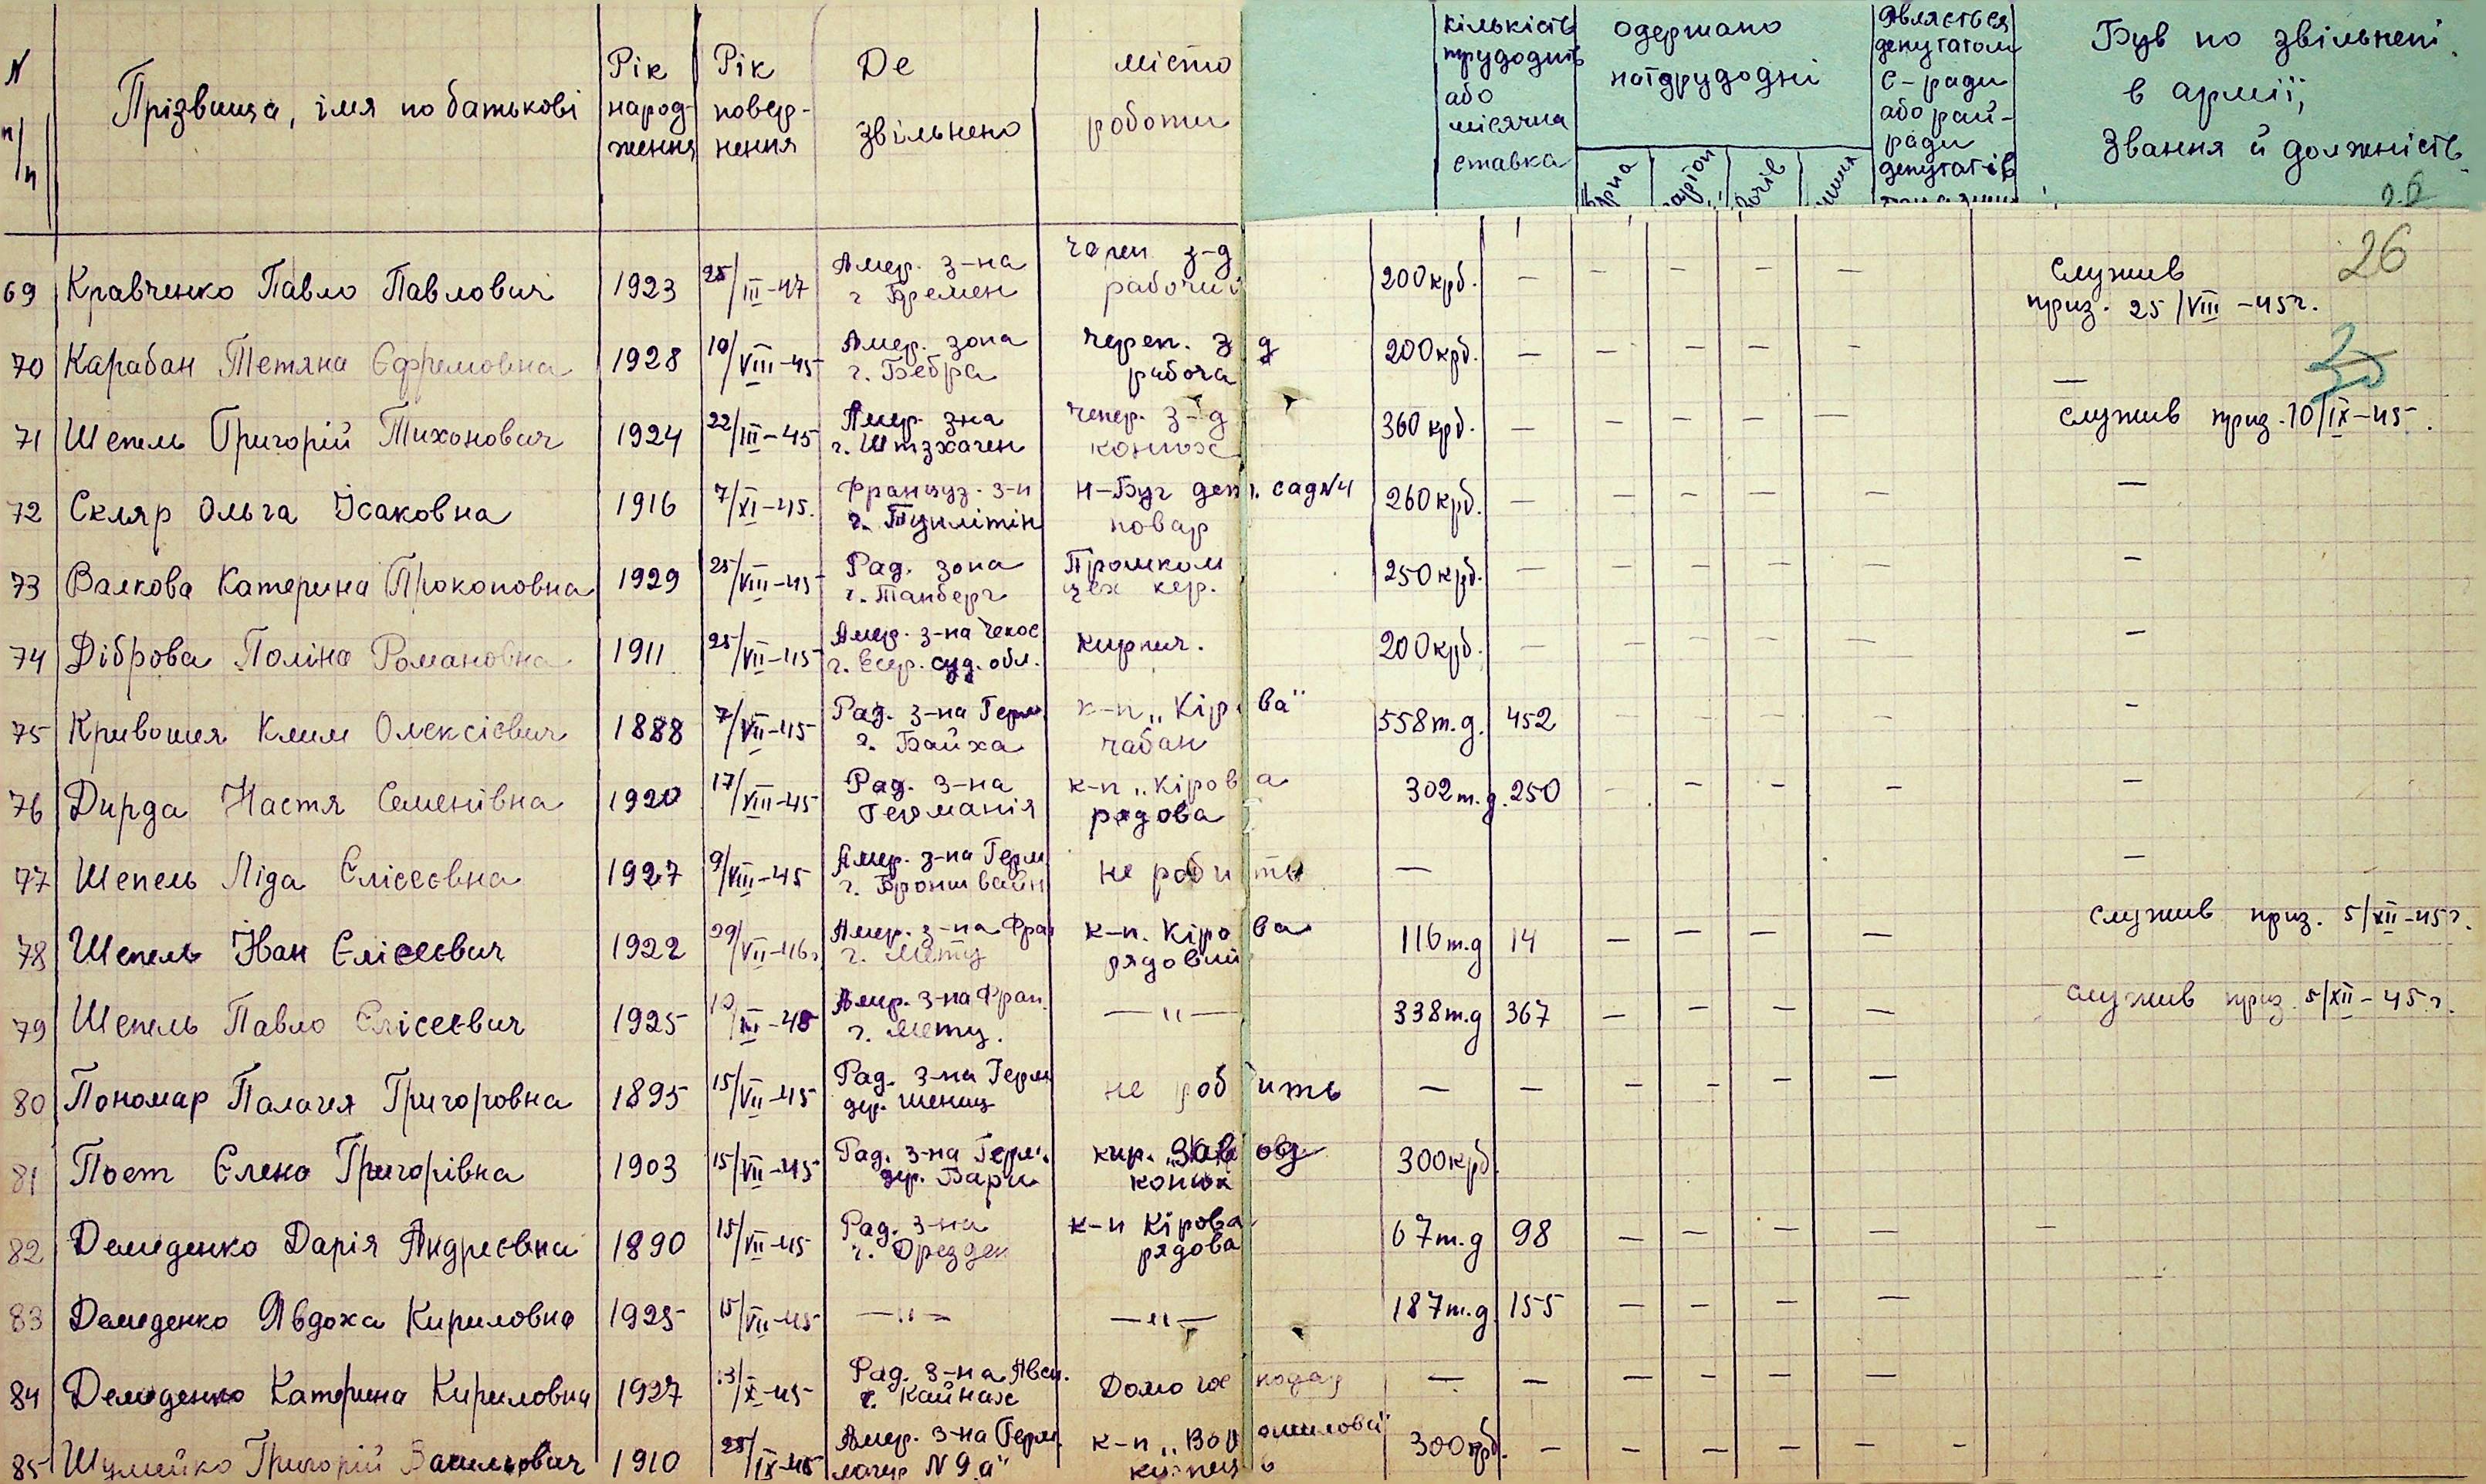 N п/п
Прізвища, імя по батькові
Рік народ- ження
Рік повер- нення
Де звільнено
місто роботи
кількість трудоднів або місячна ставка
одержано на трудодні
являється депутатом с-ради або рай- ради депутатів
Був по звільнені в армії, Звання й должність
26
69 Кравченко Павло Павлович 1923 25/III-47 Амер. з-на г Бремен череп з-д рабочий 200крб. — — — — — служив приз. 25/VIII-45г.
70 Карабан Тетяна Єфремовна 1928 10/VIII-45 Амер. зона г. Бебра череп. з д рабоча 200крб. — — — — — —
71 Шепель Григорій Тихонович 1924 22/III-45 Амер. зна череп. з-д конюх 360крб. — — — — — служив приз. 10/IX-45.
72 Скляр Ольга Ісаковна 1916 7/XI-45. Француз. з-н Н-Буг дет. сад N4 повар 260крб. — — — — — —
73 Валкова Катерина Прокоповна 1929 25/VIII-45 Рад. зона г. Танберг Промком цех кер. 250крб. — — — — — —
74 Діброва Поліна Романовна 1911 25/VII-45 Амер. з-на Чехос г. Егер. суд. обл. кирпич. 200крб. — — — — — —
75 Кривошия Клим Олексієвич 1888 7/VII-45 Рад. з-на Герм. г. Байха к-п „Кірова" чабан 558т.д. 452 — — — — —
76 Дирда Настя Семенівна 1920 17/VIII-45 Рад. з-на Германія к-п „Кірова рядова 302т.д. 250 — — — — —
77 Шепель Ліда Єлісеєвна 1927 9/VIII-45 Амер. з-на Герм. г. Броншвайн не робить — —
78 Шепель Іван Єлісеєвич 1922 29/VII-46г Амер. з-на Фран г. Метц к-п. Кірова рядовий 116т.д 14 — — — — служив приз. 5/XII-45г.
79 Шепель Павло Єлісеєвич 1925 Амер. з-на Фран. г. Метц. —"— 338т.д 367 — — — — служив приз. 5/XII-45г.
80 Пономар Палагея Григоровна 1895 15/VII-45 Рад. з-на Герм дер. Шениц не робить — — — — — —
81 Поет Єлена Григорівна 1903 15/VII-45 Рад. з-на Герм. дер. Бари кир. „Завод конюх 300крб.
82 Демиденко Дарія Андреєвна 1890 15/VII-45 Рад. з-на г. Дрезден к-п Кірова рядова 67т.д 98 — — — — —
83 Демиденко Явдоха Кириловна 1925 15/VII-45 —"— —"— 187т.д. 155 — — — —
84 Демиденко Катерина Кириловна 1927 Рад. з-на Авст. г. Кайнах Домогосподар — — — — — —
85 Шумейко Григорій Васильович 1910 25/IX-45 Амер. з-на Герм. лагер N 9 „а" к-п „Ворошилова" 300крб. — — — — — —